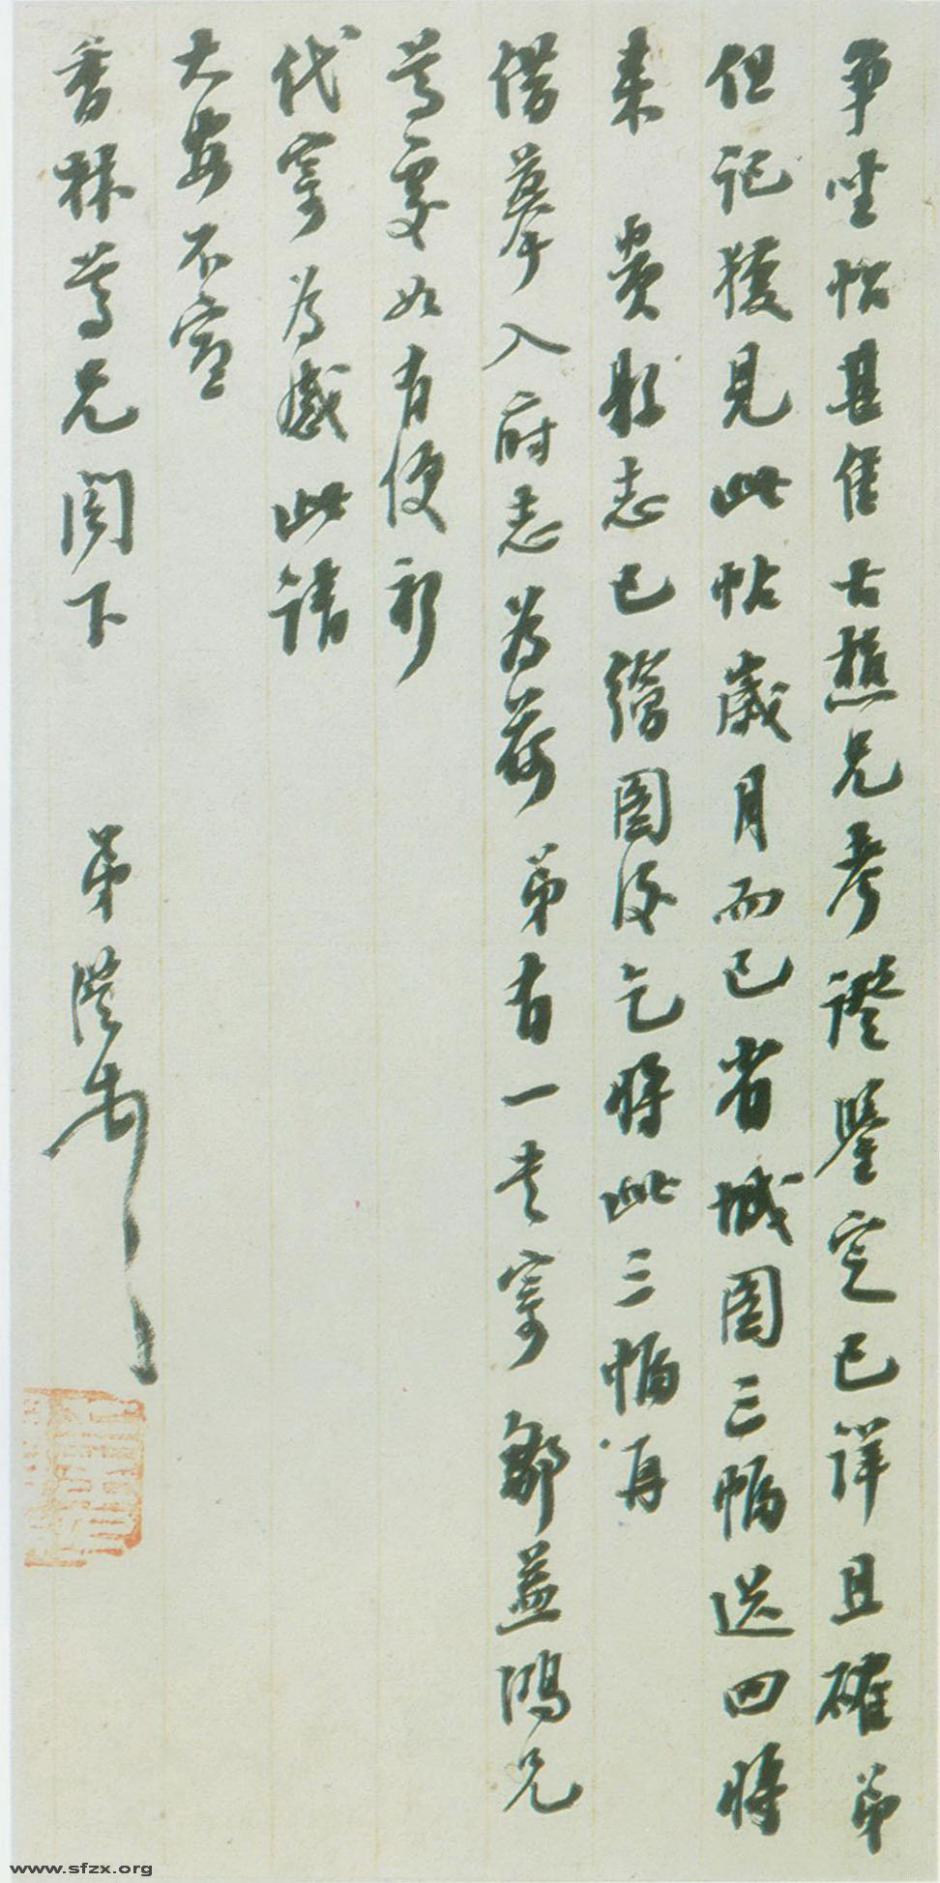 爭坐帖甚佳古樵兄考證鑒定已詳且確弟
但記獲見此帖歲月而已省城圖三幅送回將
來 貴縣志已繪圖後乞將此三幅再
借摹入府志為荷 弟有一書寄 鄒益鴻兄
尊處如有便祈
代寄為感此請
大安不宣
香林尊兄閣下 弟澧
www.sfzx.org